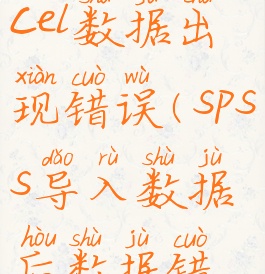 cel数据出
xiàn cuò wù
现错误(SPS
dǎo rù shù jù
S导入数据
hòu shù jù cuò
后数据错